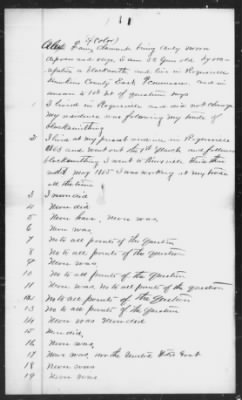 (Color)
Also Davy Laurence being duly sworn
deposes and says I am 52 years old by occu-
pation a blacksmith and live in Rogersville
Hawkins County East Tennessee, and in
answer to 1st set of question says
1 I lived in Rogersville and did not change
my residence was following my trade of
blacksmithing
2 I lived at my present residence in Rogersville
1865 and went out the 1st March and followed
blacksmithing I went to
until May 1865 I was working at my trade
all the time
3 I never did
4 Never did
5 Never have, Never was,
6 Never was,
7 No to all points of the question
8 No to all points of the question
9 Never was,
10 No to all points of the question
11 Never was, No to all points of the question
12 No to all points of the question
13 No to all points of the question
14 Never was Never did
15 Never did,
16 Never was,
17 Never was, nor the United States Govt
18 Never was
19 Never was